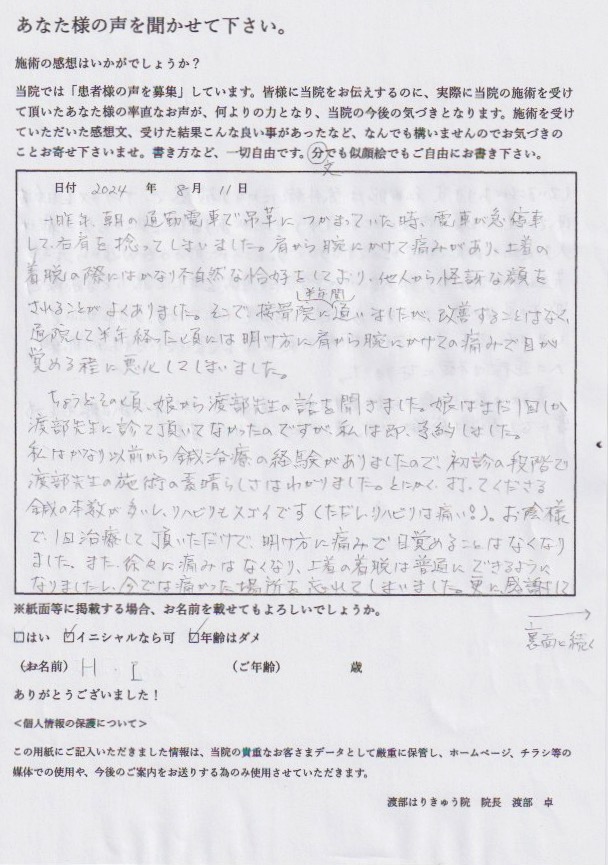 あなた様の声を聞かせて下さい。
施術の感想はいかがでしょうか？
当院では「患者様の声を募集」しています。皆様に当院をお伝えするのに、実際に当院の施術を受け
て頂いたあなた様の率直なお声が、何よりの力となり、当院の今後の気づきとなります。施術を受け
ていただいた感想文、受けた結果こんな良い事があったなど、なんでも構いませんのでお気づきの
ことお寄せ下さいませ。書き方など、一切自由です。分でも似顔絵でもご自由にお書き下さい。
文
日付 2024 年 8月 11日
一昨年、朝の通勤電車で吊革につかまっていた時、電車が急停車
して、右肩を捻ってしまいました。肩から腕にかけて痛みがあり、上着の
着脱の際にはかなり不自然な恰好をしており、他人から怪訝な顔を
されることがよくありました。そこで、接骨院に通いましたが、改善することはなく、
半年間
通院して半年経った頃には明け方に肩から腕にかけての痛みで目が
覚める程に悪化してしまいました。
ちょうどその頃、娘から渡部先生の話を聞きました。娘はまだ1回しか
渡部先生に診て頂いてなかったのですが、私は即、予約しました。
私はかなり以前から鍼治療の経験がありましたので、初診の段階で
渡部先生の施術の素晴らしさはわかりました。とにかく、打ってくださる
鍼の本数が多いし、リハビリもスゴイです（ただし、リハビリは痛い！）。お陰様
で、1回治療して頂いただけで、明け方に痛みで目覚めることはなくなり
ました。また、徐々に痛みはなくなり、上着の着脱は普通にできるように
なりましたし、今では痛かった場所を忘れてしまいました。更に、感謝して
※紙面等に掲載する場合、お名前を載せてもよろしいでしょうか。
→
裏面に続く
□はい ☑イニシャルなら可 ☑年齢はダメ
（お名前） H . I （ご年齢） 歳
ありがとうございました！
＜個人情報の保護について＞
この用紙にご記入いただきました情報は、当院の貴重なお客さまデータとして厳重に保管し、ホームページ、チラシ等の
媒体での使用や、今後のご案内をお送りする為のみ使用させていただきます。
渡部はりきゅう院 院長 渡部 卓